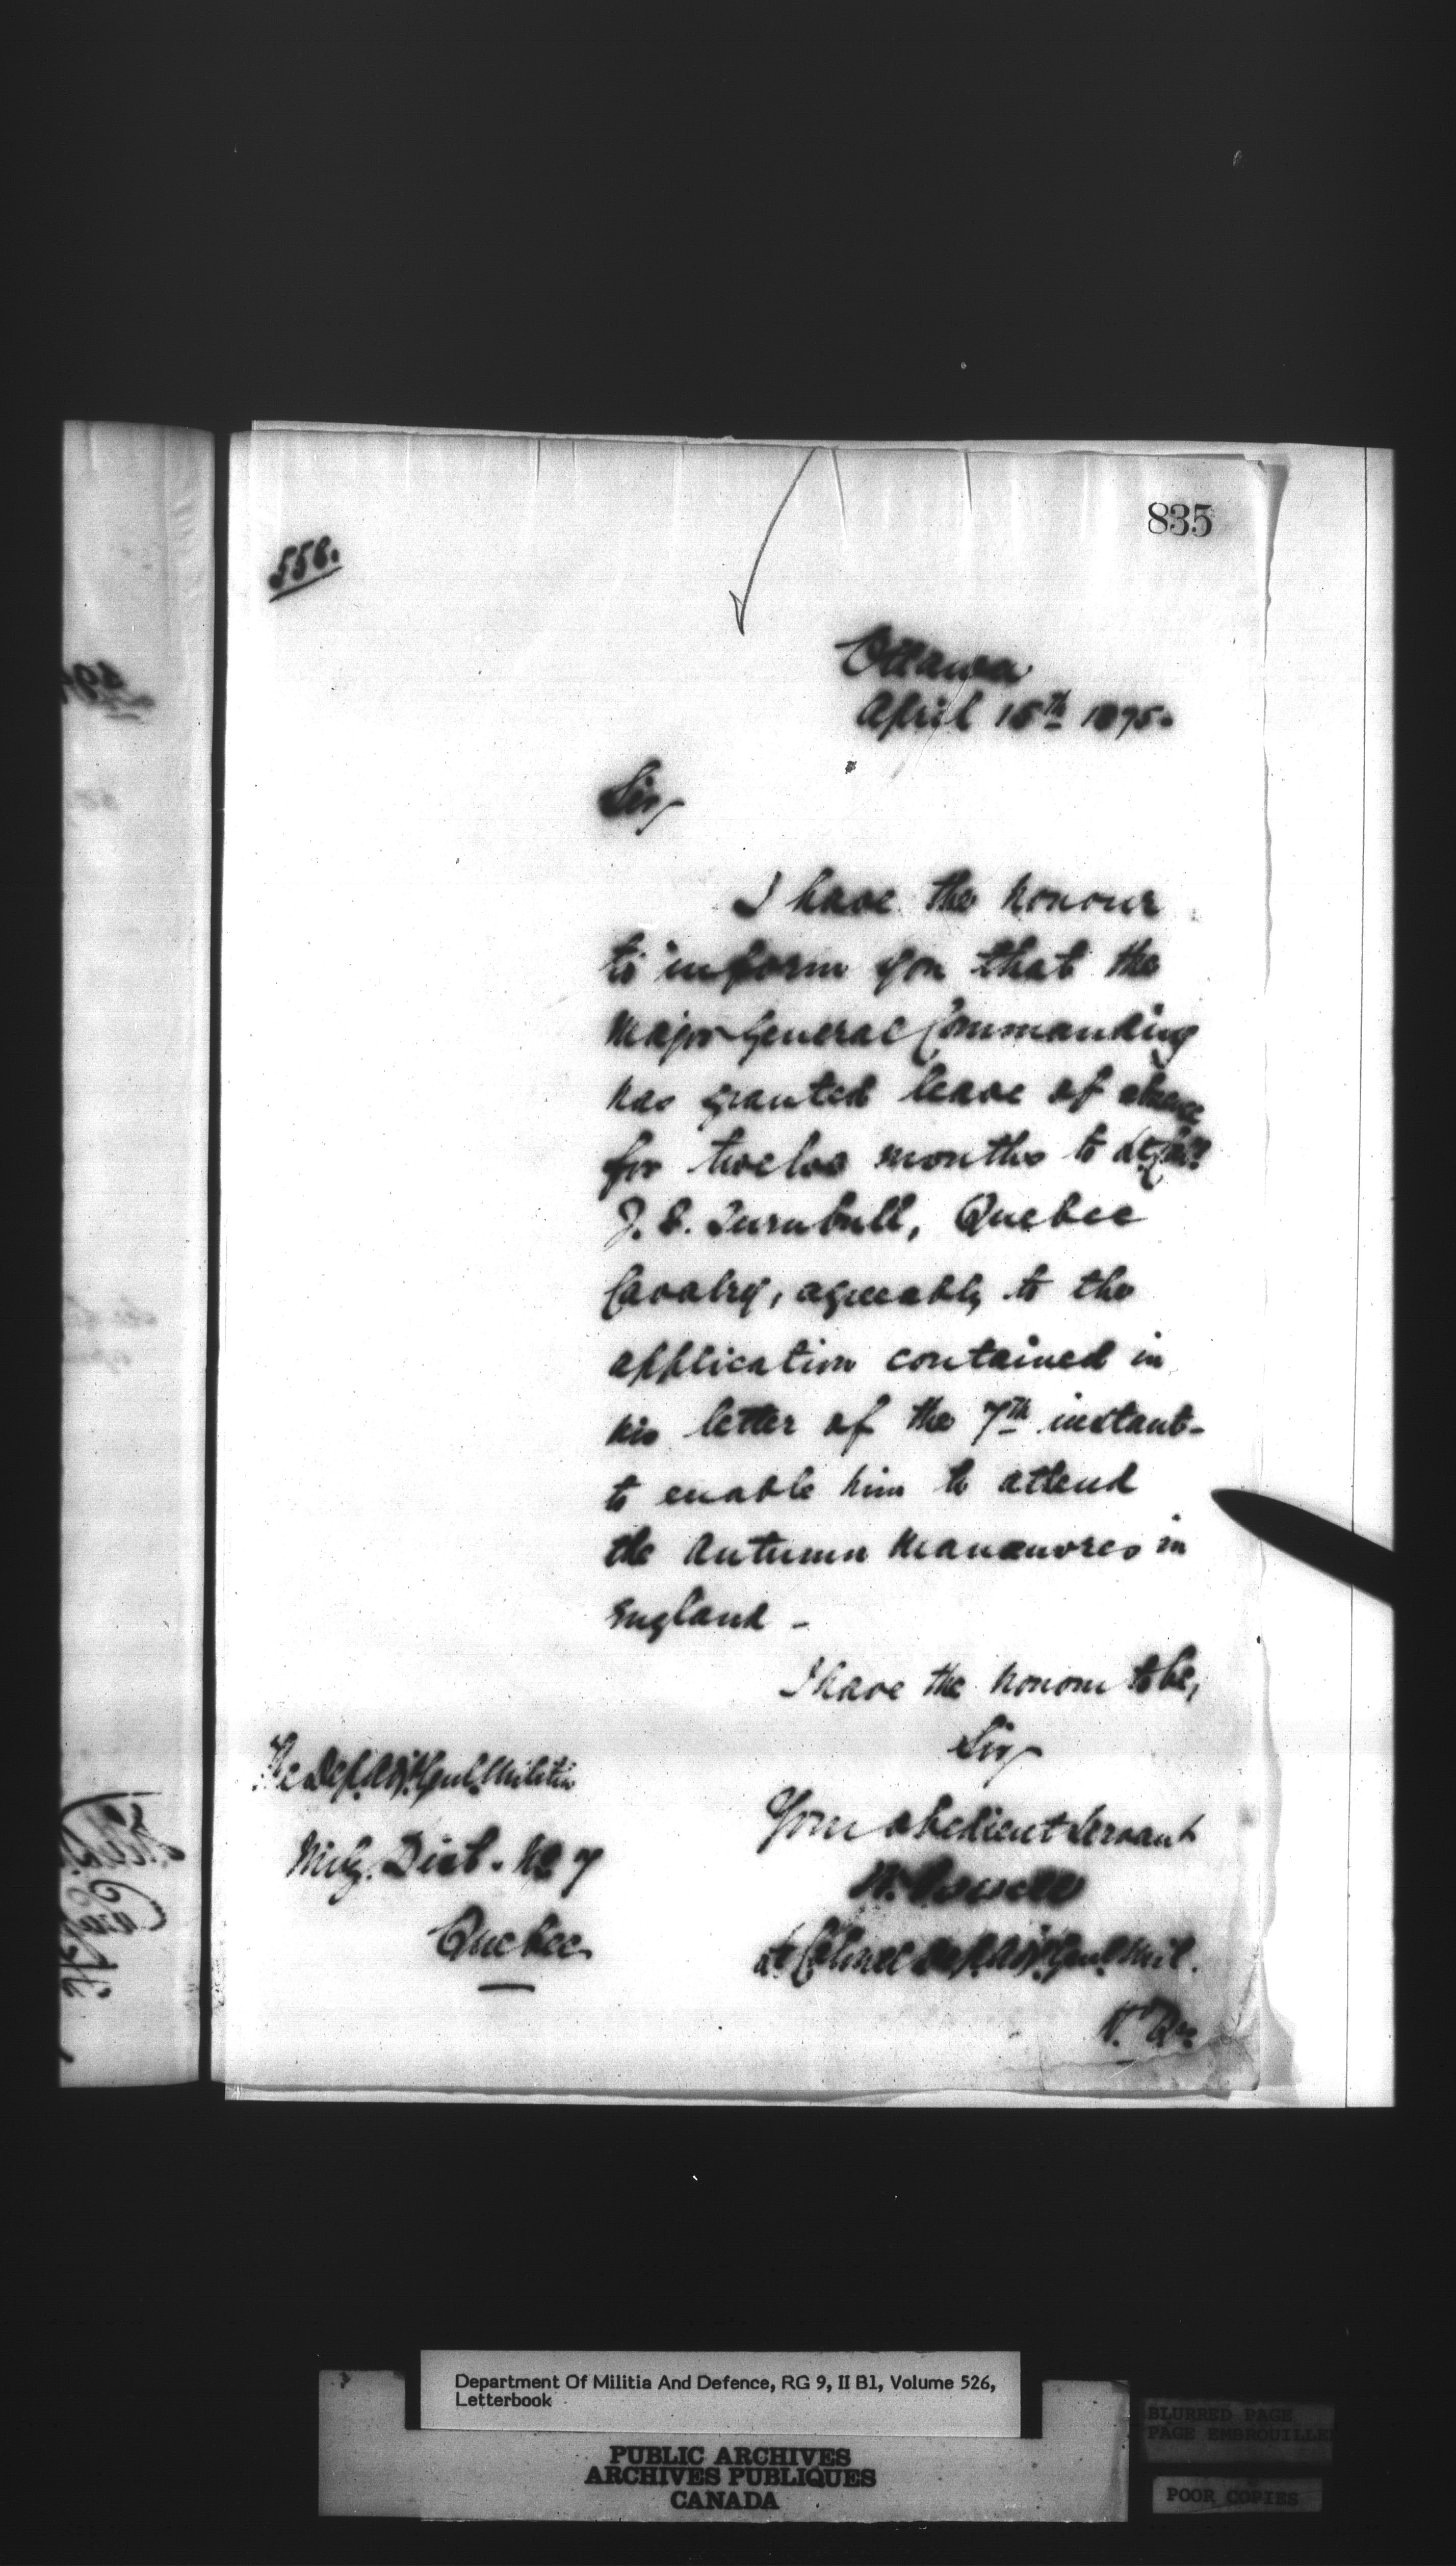 835
556.
Ottawa
April 15th 1875.
Sir,
I have the honour
to inform you that the
Major General Commanding
has granted leave of absence
for twelve months to Lt. Col.
J. F. Turnbull, Quebec
Cavalry, agreeably to the
application contained in
his letter of the 7th instant-
to enable him to attend
the Autumn Manœuvres in
England -
I have the honour to be,
Sir,
Your obedient Servant
W. Powell
Lt Colonel Dep. Adjt. Genl. Mil.
H. Qrs.
The Dep. Adjt. Genl. Militia
Mily. Dist. No 7
Quebec
Department Of Militia And Defence, RG 9, II B1, Volume 526,
Letterbook
PUBLIC ARCHIVES
ARCHIVES PUBLIQUES
CANADA
BLURRED PAGE
PAGE EMBROUILLEE
POOR COPIES